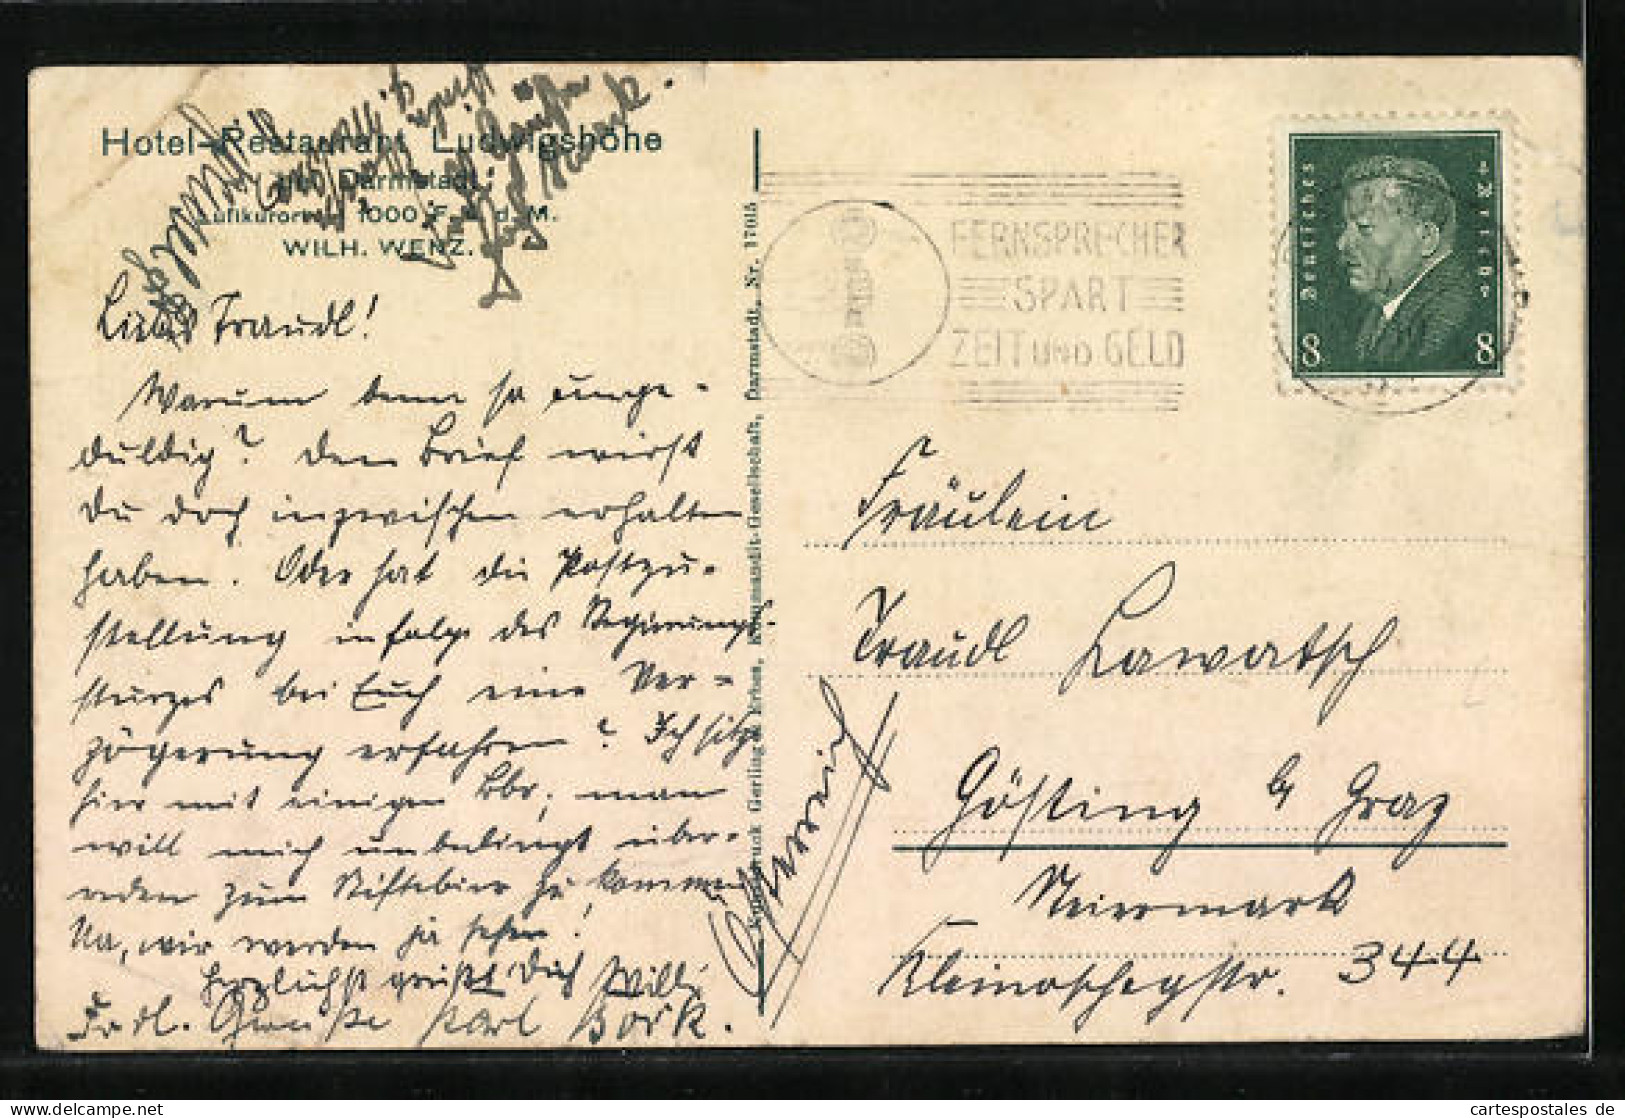 Hotel-Restaurant Ludwigshöhe
Darmstadt
Luftkurort 1000 F. ü. d. M.
WILH. WENZ.
Liebe Traudl!
Warum denn so unge-
duldig? Den Brief wirst
Du doch inzwischen erhalten
haben. Oder hat die Postzu-
stellung infolge des Regierungs-
sturzes bei Euch eine Ver-
zögerung erfahren? Ich sitze
hier mit einigen Bbr, man
will mich unbedingt über-
reden zum Stiftebier zu kommen
Na, wir werden ja sehen!
Herzlichst grüßt Dich Willi
Frdl. Grüße Karl Bork.
Kupferdruck Gerling & Erben, Kommandit-Gesellschaft, Darmstadt, Nr. 17615
FERNSPRECHER
SPART
ZEIT UND GELD
Deutsches Reich
8 8
Fräulein
Traudl Lawatsch
Gösting b Graz
Steiermark
Kleinoschegstr. 344